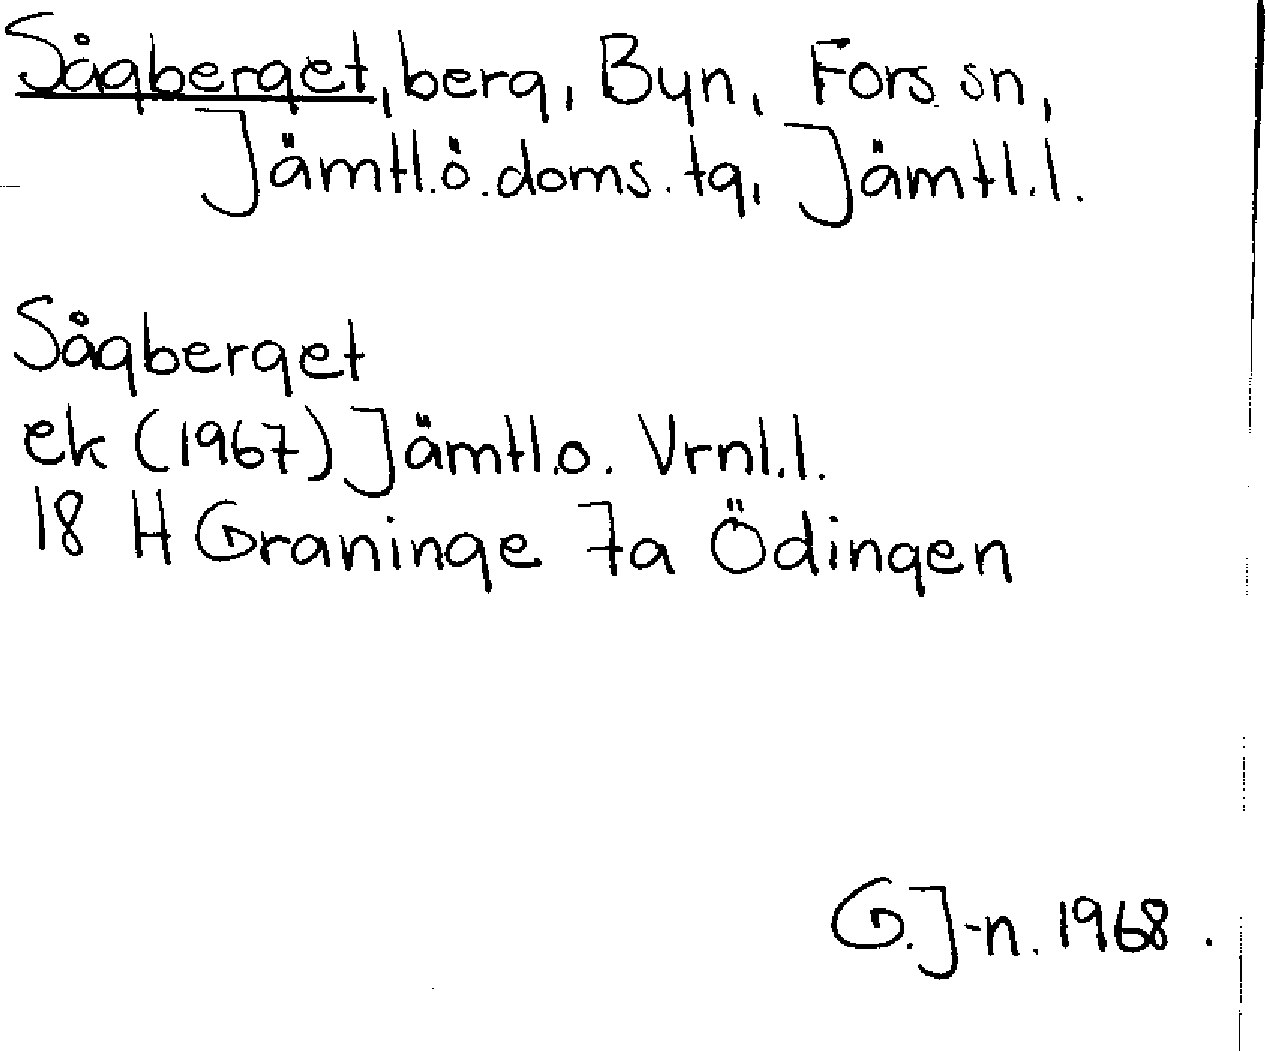 Sågberget, berg, Byn, Fors sn,
Jämtl.ö.doms.tg, Jämtl.l.
Sågberget
ek (1967) Jämtl.o. Vrnl.l.
18 H Graninge 7a Ödingen
G.J-n. 1968.